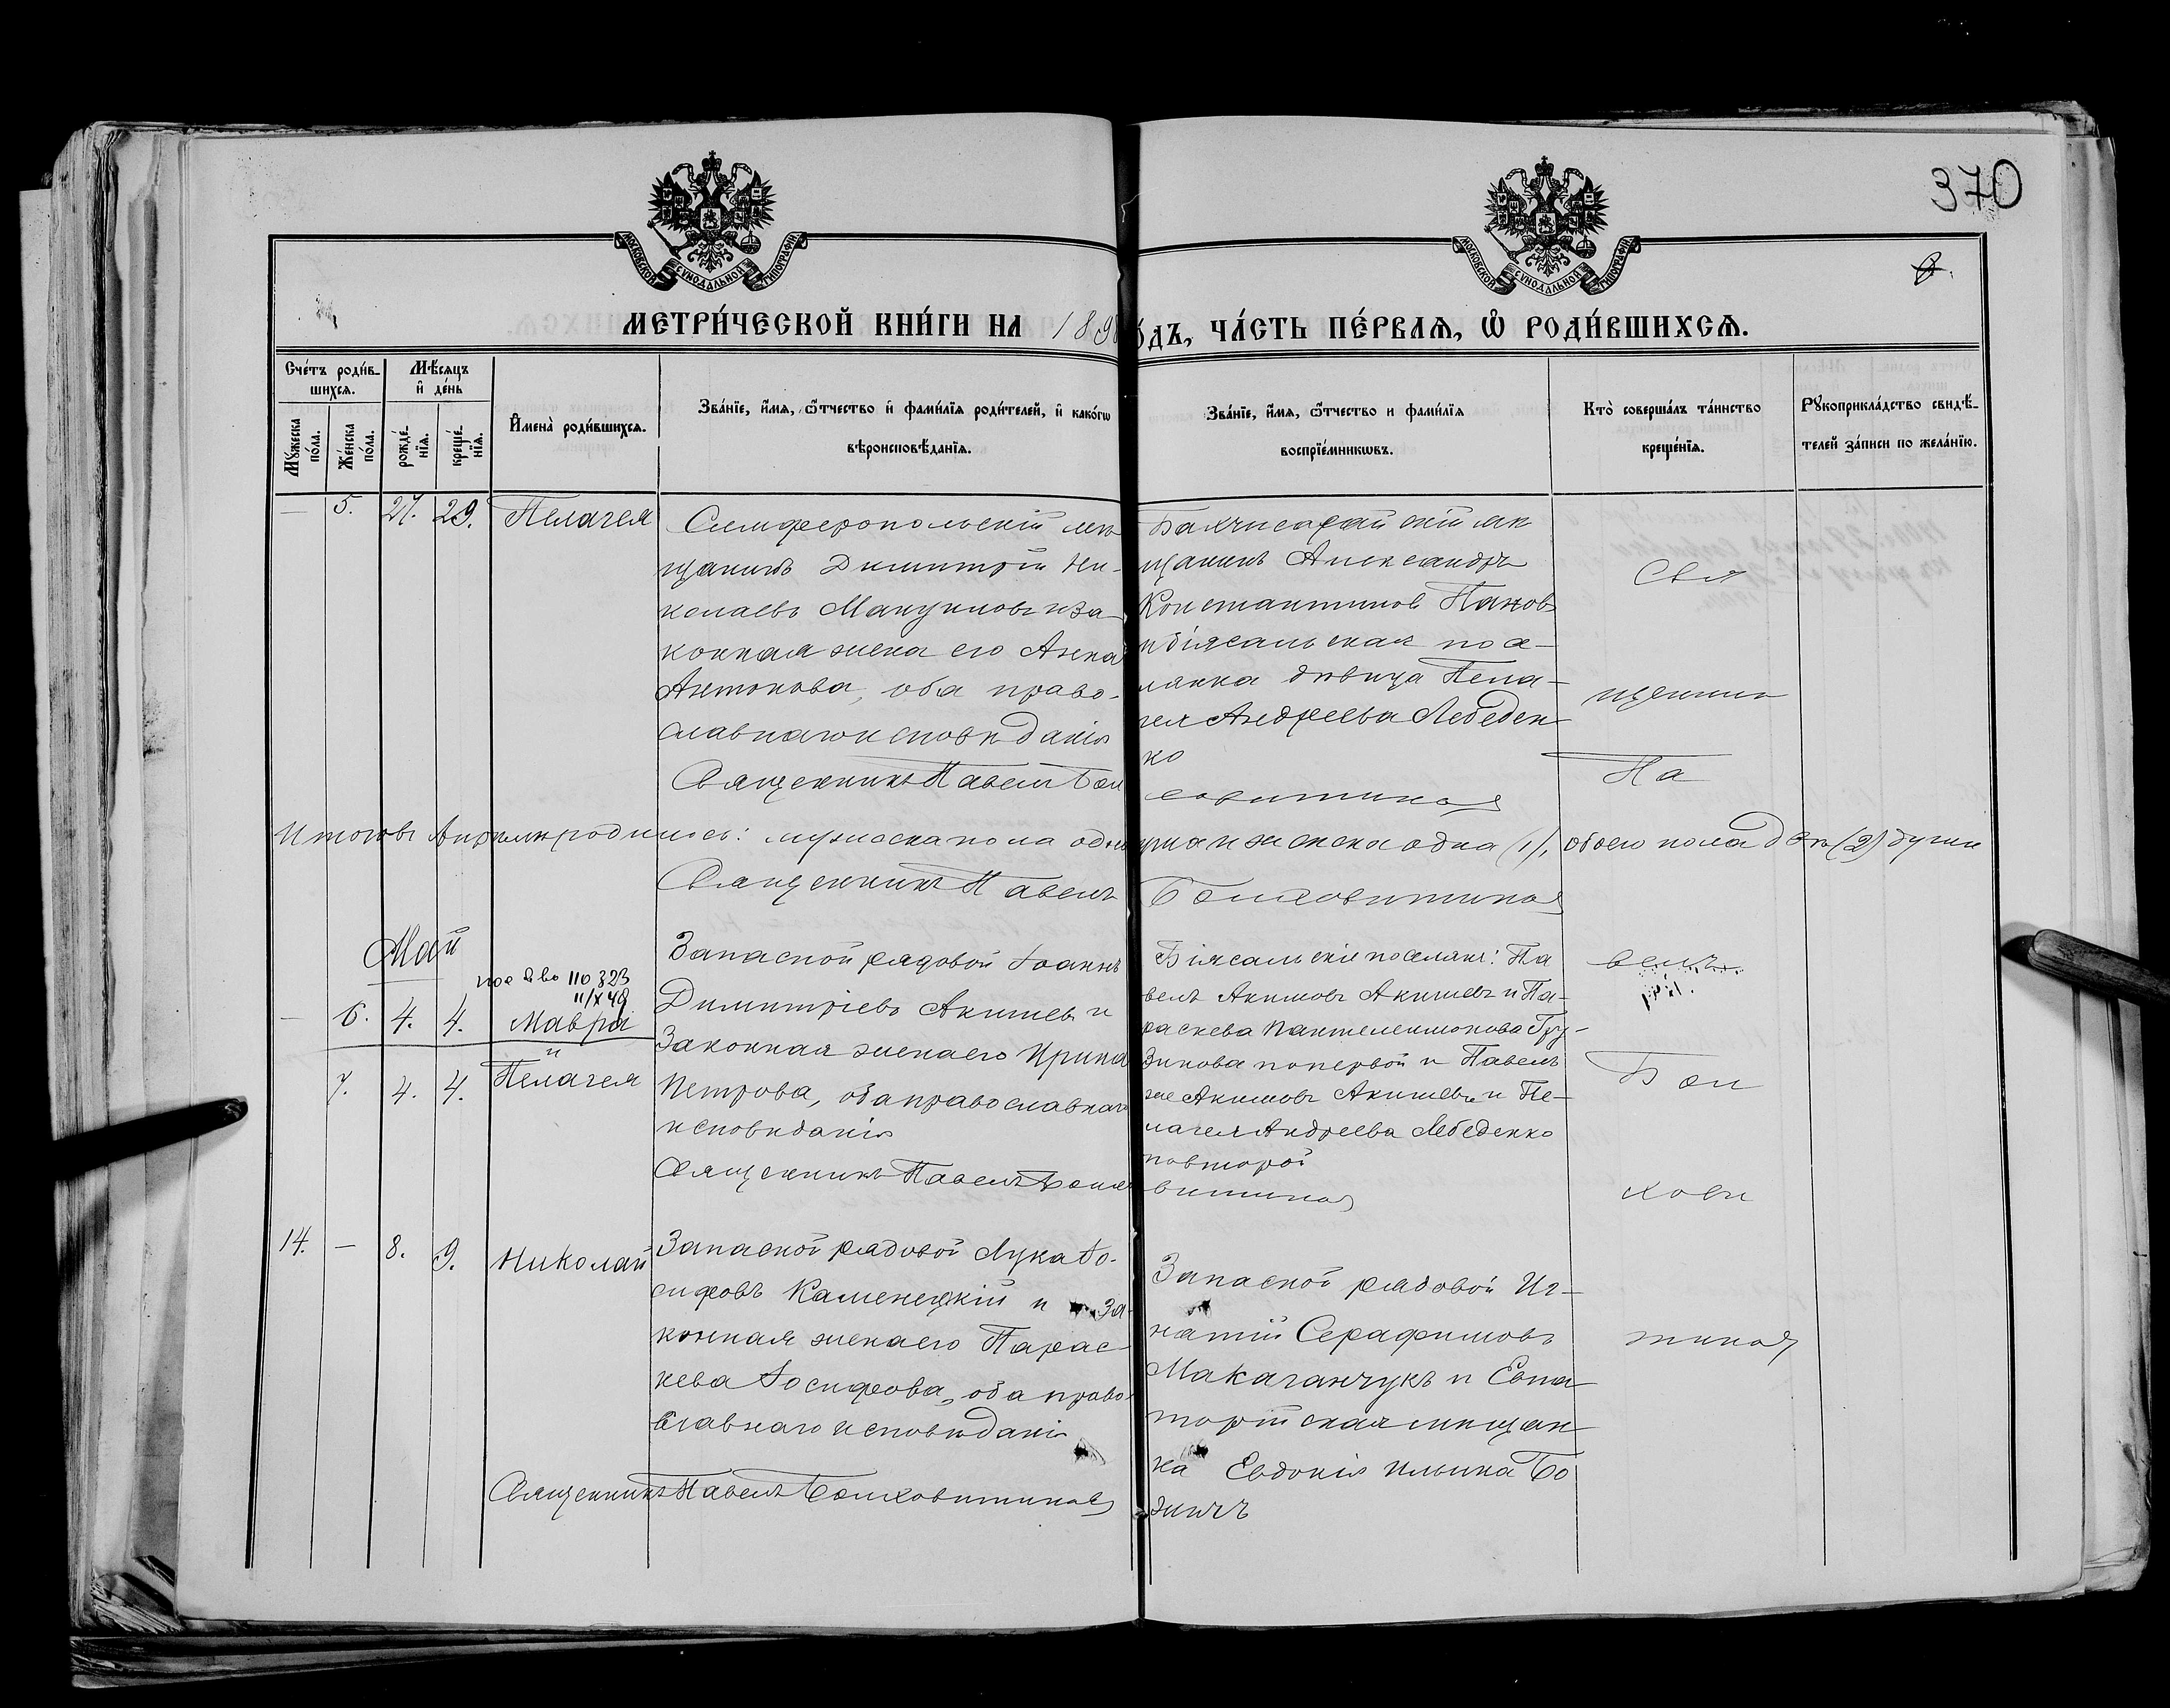 370
МОСКОВСКОЙ СУНОДАЛЬНОЙ ТИПОГРАФІИ
МОСКОВСКОЙ СУНОДАЛЬНОЙ ТИПОГРАФІИ
МЕТРИ́ЧЕСКОЙ КНИ́ГИ НА 189 О́ДЪ, ЧА́СТЬ ПЕ́РВАѦ, Ѡ҆ РОДИ́ВШИХСѦ.
Сче́тъ роди́в-
шихсѧ.
Мꙋ́жеска по́ла.
Же́нска по́ла.
Мѣ́сѧцъ
и҆ де́нь
рожде́нїѧ.
креще́нїѧ.
И҆мена̀ роди́вшихсѧ.
Зва́нїе, и҆́мѧ, ѻ҆́тчество и҆ фами́лїѧ роди́телей, и҆ како́гѡ
вѣроисповѣ́данїѧ.
Зва́нїе, и҆́мѧ, ѻ҆́тчество и фами́лїѧ
воспрїе́мникѡвъ.
Кто̀ соверша́лъ та́инство
креще́нїѧ.
Рꙋкоприкла́дство свидѣ́-
телей за́писи по жела́нїю.
— 5. 27. 29. Пелагея
Симферопольскій мѣ
щанинъ Димитрій Ни-
колаевъ и за
конная жена его Анна
Антонова, оба право-
славнаго исповѣданія
Священникъ Павелъ Бол
Бахчисарайскій мѣ
щанинъ Александръ
Константиновъ Пановъ
и біясальская посе-
лянка дѣвица Пела-
гея Андреева Лебеден
ко
ховитиновъ
Свя
щенник
Па
Итого въ Апрѣлѣ родилось: мужеска пола одна и женска одна (1), обоего пола двѣ (2) души
Священникъ Павелъ Болховитиновъ
Май
110323
11/X 49
— 6. 4. 4. Мавра
и
7. 4. 4. Пелагея
Запасной рядовой Іоаннъ
Димитріевъ Акишевъ и
Законная жена его Ирина
Петрова, оба православнаго
исповѣданія
Священникъ Павелъ Болхо
Біясальскіе поселяне: Па
велъ Акимовъ Акишевъ и Па-
раскева Пантелеимонова Гру-
зинова по первой и Павелъ
же Акимовъ Акишевъ и Пе-
лагея Андреева Лебеденко
по второй
витиновъ
велъ
Бол
хови
14. — 8. 9. Николай
Запасной рядовой Лука Іо-
сифовъ Каменецкій и за-
конная жена его Парас-
кева Іосифова, оба право-
славнаго исповѣданія
Священникъ Павелъ Болховитиновъ
Запасной рядовой Иг-
натій Серафимовъ
Макаганчукъ и Евпа-
торійская мѣщан
ка Евдокія Ильина Бо
тиновъ